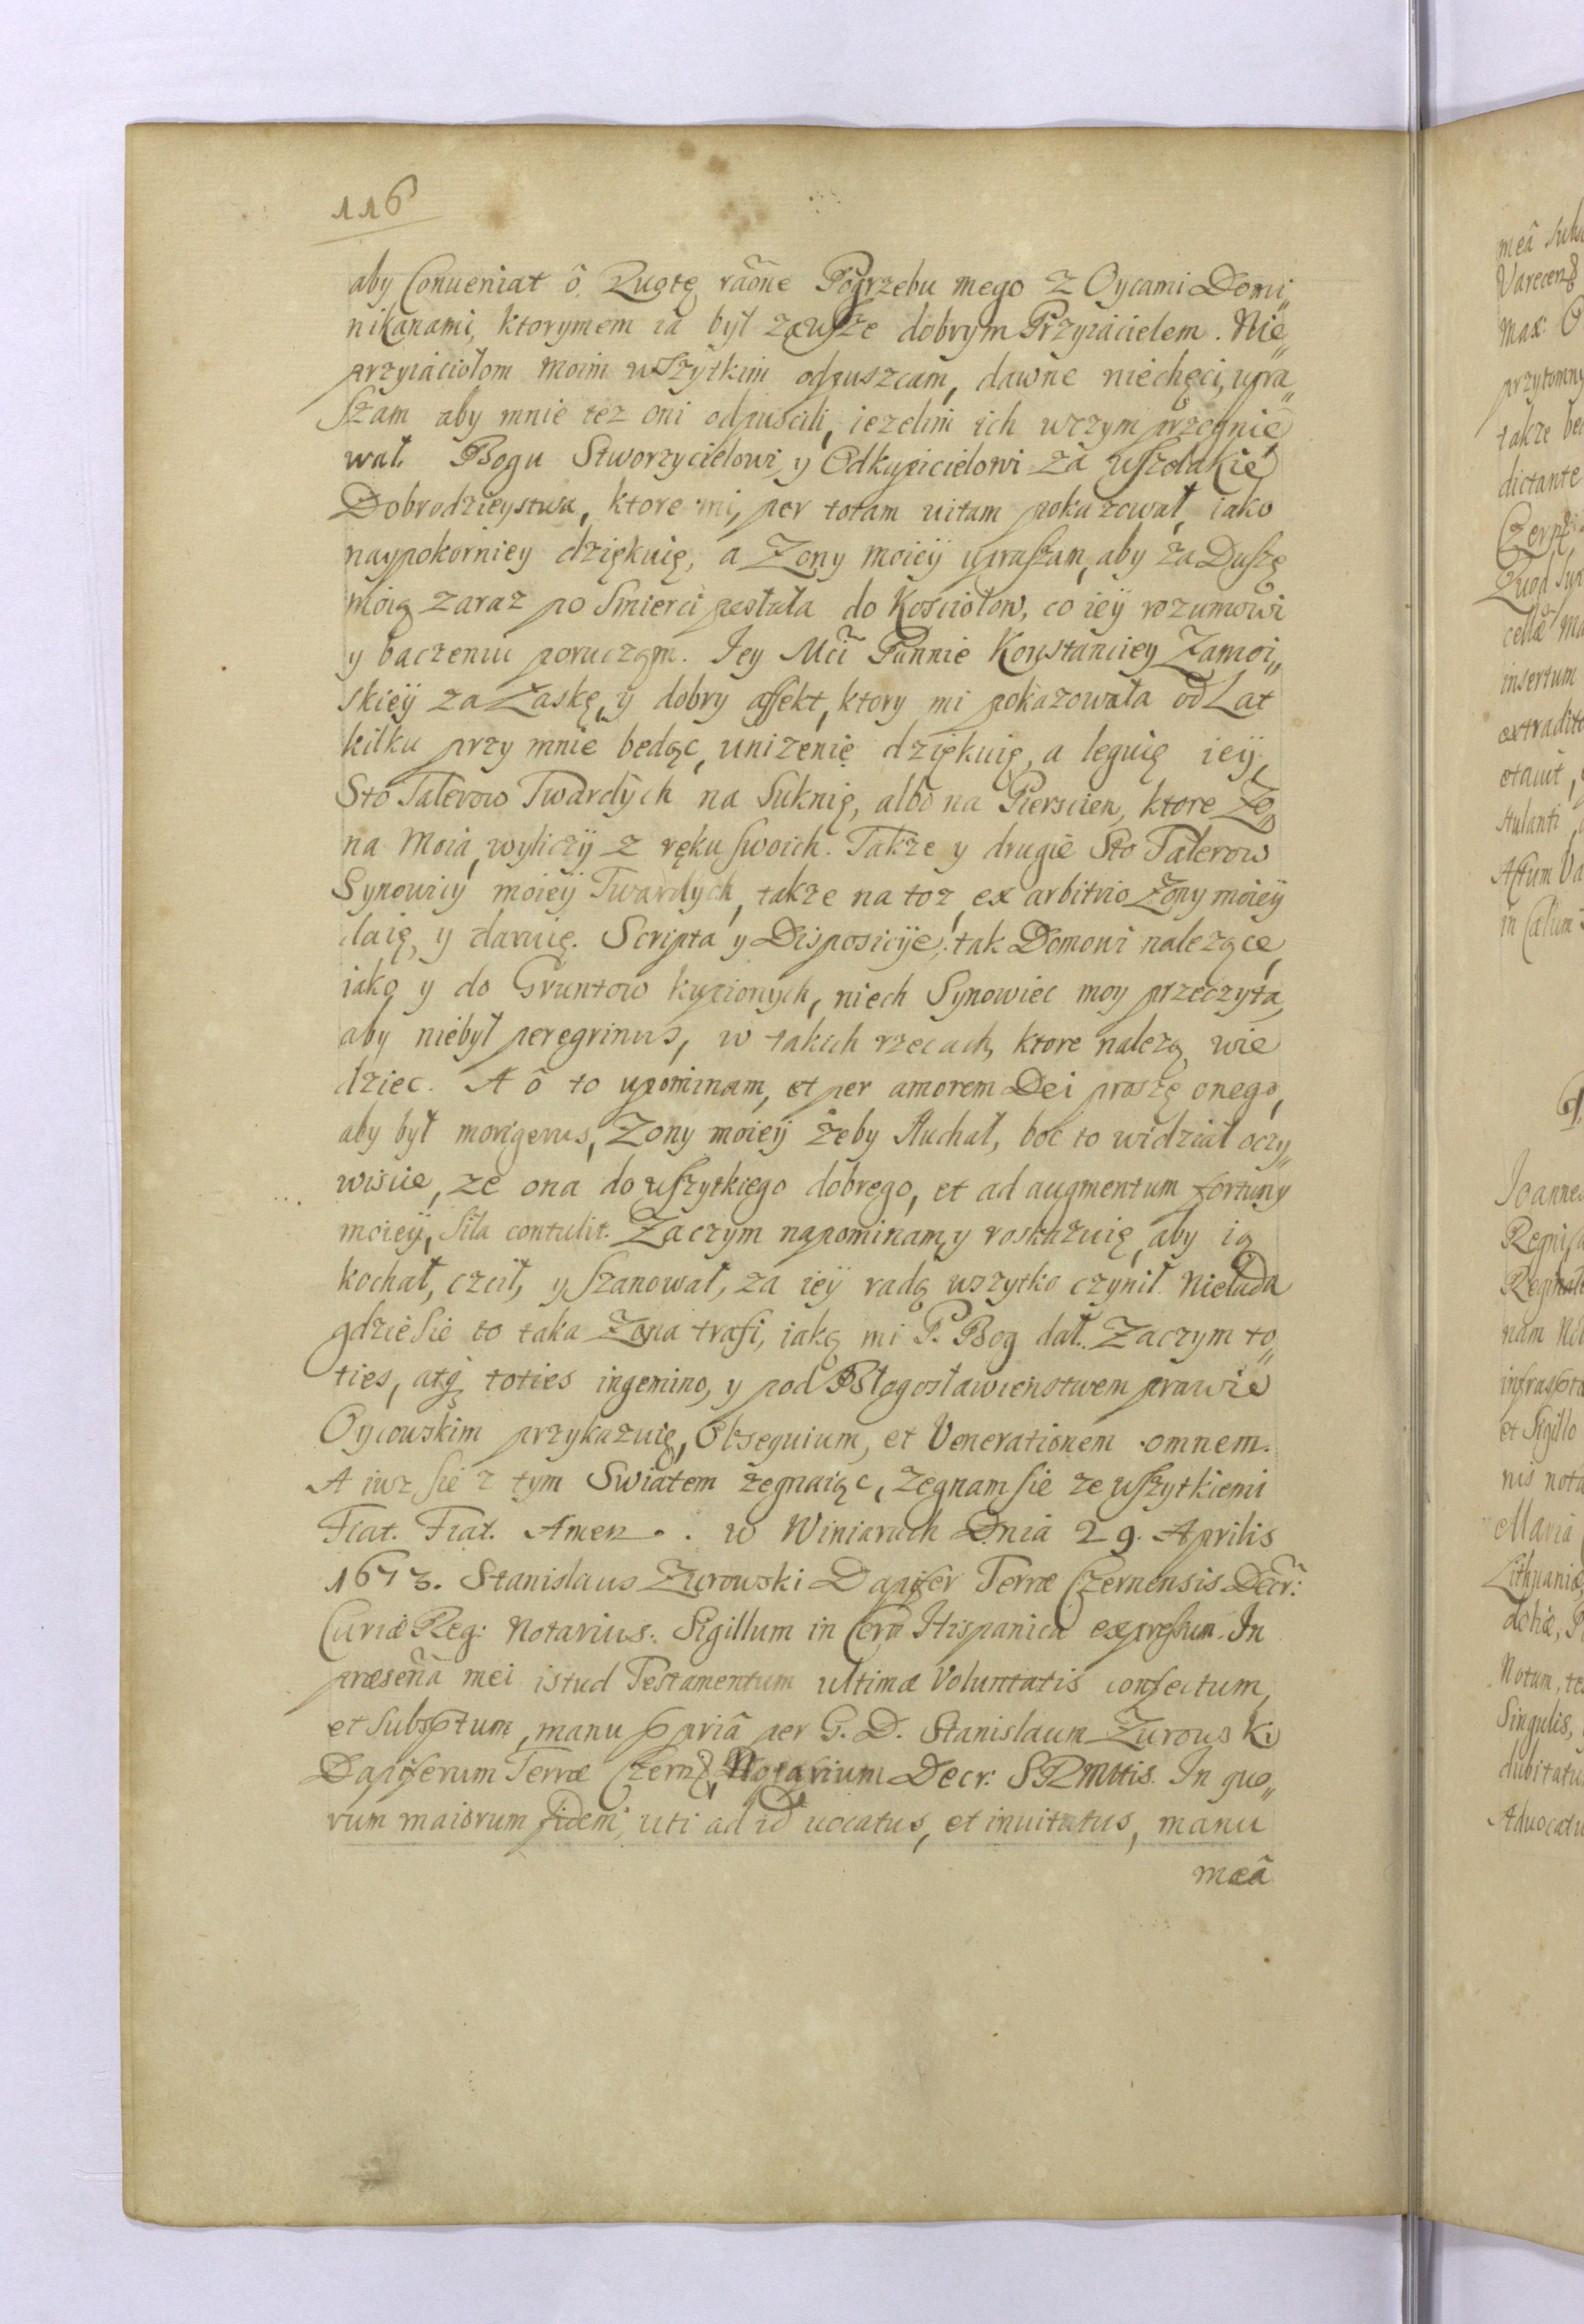 116
aby Conueniat ô Quotę raõne Pogrzebu mego z Oycami Domi„
nikanami, ktorymem ia był zawsze dobrym Przyiacielem. Nie„
przyiaciołom moim wszytkim odpuszczam, dawne niechęci, upra„
szam aby mnie tez oni odpuscili, iezelim ich wczym przegnie
wał. Bogu Stworzycielowi y Odkupicielowi za wszelakie
Dobrodzieystwa, ktore mi, per totam uitam pokazował, iako
naypokorniey dziękuię, a Zony moieÿ upraszam, aby za Duszę
moią zaraz po Smierci posłała do Kosciołow, co ieÿ rozumowi
y baczeniu poruczam. Jey Mci Pannie Konstanciey Zamoi„
skieÿ za Łaskę, y dobry affekt, ktory mi pokazowała od Lat
kilku przy mnie bedąc, unizenie dziękuię, a leguię ieÿ,
Sto Talerow Twardÿch na Suknię, albo na Pierscien, ktore Zo„
na Moia wyliczÿ z ręku swoich. Takze y drugie Sto Talerow
Synowicy moieÿ Twardych, takze na toz, ex arbitrio Zony moieÿ
daię, y daruię. Scripta y Disposicÿe, tak Domowi nalezące,
iako y do Gruntow kupionych, niech Synowiec moy przeczyta,
aby niebył peregrinus, w takich rzecach, ktore nalezą wie
dziec. A ô to upominam, et per amorem Dei proszę onego,
aby był morigerus, Zony moieÿ żeby słuchał, boc to widział oczy„
wiscie, ze ona do wszytkiego dobrego, et ad augmentum fortuny
moieÿ, siła contulit. Zaczym napominam, y roskazuię, aby ią
kochał, czcił, y szanował, za ieÿ radą wszytko czynił. Nielada
gdzie sie to taka Zona trafi, iaką mi P. Bog dał. Zaczym to„
ties, atq toties ingemino, y pod Błogosławienstwem prawie
Oycowskim przykazuię, Obsequium, et Venerationem omnem.
A iusz sie z tym Swiatem żegnaiąc, zegnam sie ze wszytkiemi
Fiat. Fiat. Amen. . w Winiarach Dnia 29. Aprilis
1673. Stanislaus Zurowski Dapifer Terræ Czernensis Decr:
Curiæ Reg: Notarius. Sigillum in Cera Hispanica expressum. In
præsenã mei istud Testamentum ultimæ Voluntatis confectum,
et subsptum, manu ppriâ per G. D. Stanislaum Zurowski
Dapiferum Terræ Czern, Notarium Decr: SRMttis. In quo„
rum maiorum fidem, uti ad id uocatus, et inuitatus, manu
meâ